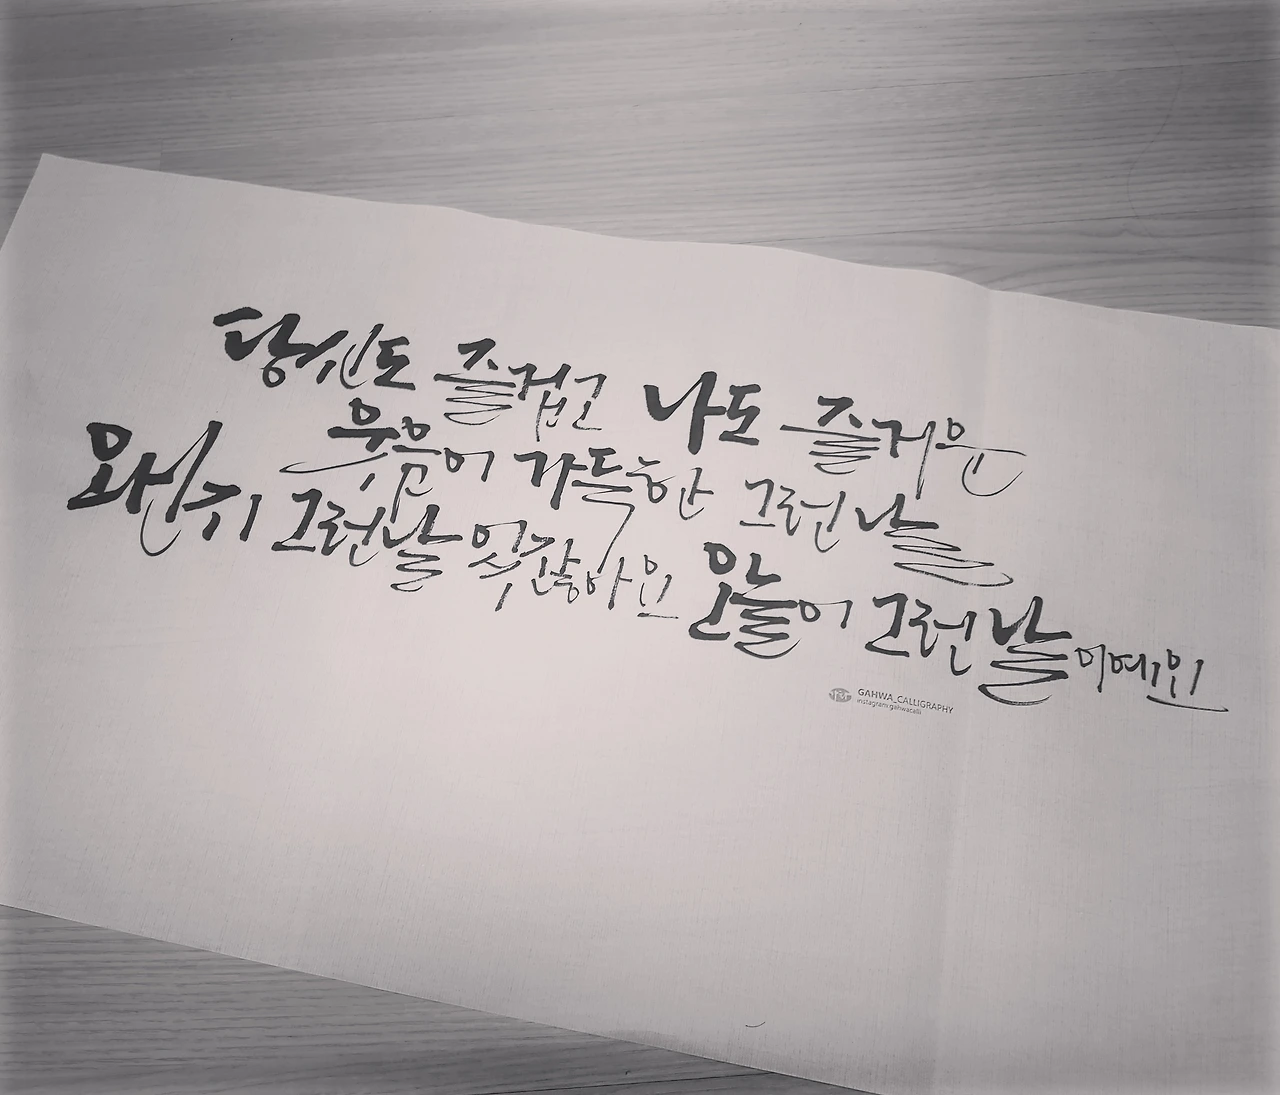 당신도 즐겁고 나도 즐거운
웃음이 가득한 그런 날
왠지 그런 날 있잖아요 오늘이 그런 날이에요
GAHWA_CALLIGRAPHY
instagram:gahwacalli